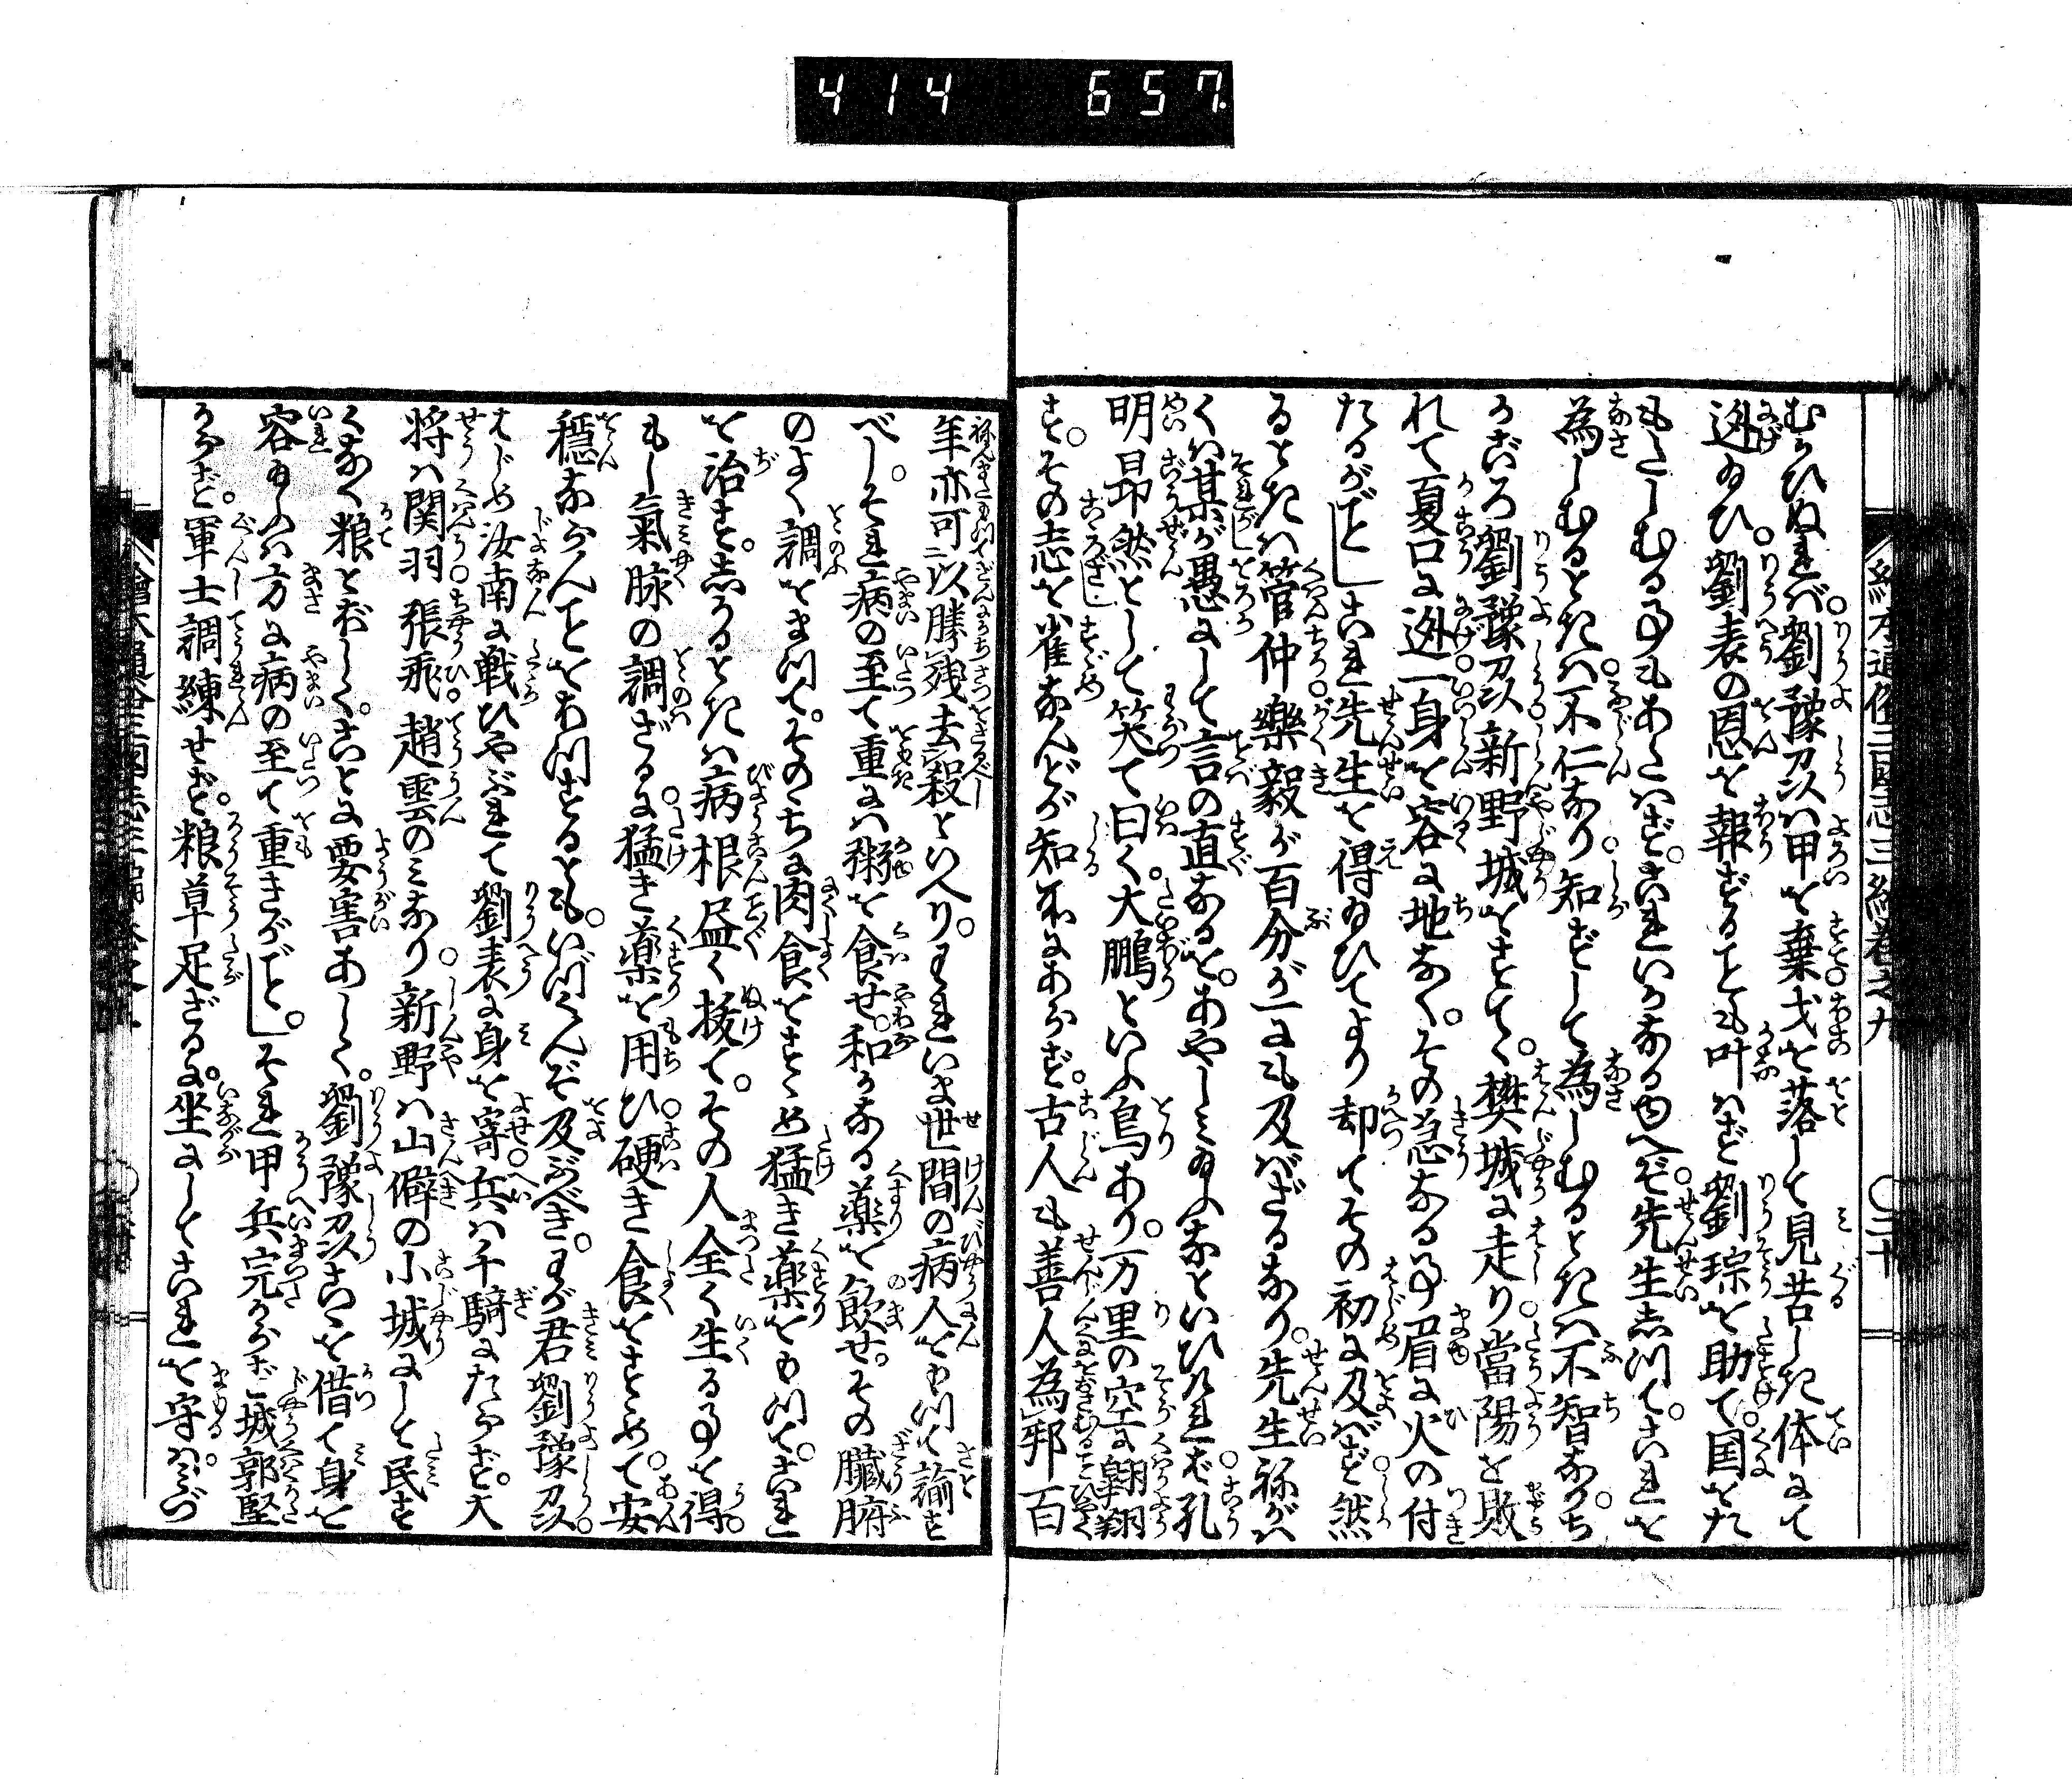 414 657
繪本通俗三國志三編巻之九 ○三十
むかひぬれバ。劉豫州ハ甲を棄戈を落して見苦しき体にて
迯給ひ。劉表の恩を報ずることも叶ハず劉琮を助て。国をた
もたしむる事もあたハず。これいかなるゆへぞ。先生志川て。これを
為しむるときハ。不仁なり。知ずして為しむるときハ不智なり。ち
かごろ劉豫州新野城をすて。樊城に走り。當陽に敗
れて夏口に迯。一身を容に地なく。その急なる事眉に火の付
たるがごとし」これ先生を得給ひてより却てその初に及バず。然
るときハ管仲。樂毅が百分が一にも及バざるなり。先生弥がハ
くハ某が愚にして言の直なるを。あやしミ給ふなといひけれバ。孔
明昻然として笑て曰く。大鵬といふ鳥あり。万里の空に翺翔
す。その志を小雀なんどが知所にあらず。古人も善人為邦百
年亦可二以勝残去殺といへり。それいま世間の病人をもつて諭す
べし。それ病の至て重にハ粥を食せ。和かなる薬を飲せ。その臓腑
のよく調をまつて。そのちに肉食をすゝめ猛き薬をもつて。これ
を治す。志かるときハ病根尽く抜て。その人全く生る事を得。
もし氣脉の調ざるに。猛き薬を用ひ。硬き食をすゝめて。安
穏ならんことをもとむるとも。いづくんぞ及ぶべき。わが君劉豫州。
はじめ汝南に戦ひやぶれて劉表に身を寄。兵ハ千騎にたらず。大
将ハ関羽。張飛。趙雲のミなり。新野ハ山僻の小城にして民す
くなく粮とぼしく。ことに要害あしく。劉豫州こゝを借て身を
容給ふハ方に病の至て重きがごとし」それ甲兵完からず。城郭堅
からず。軍士調練せず。粮草足ざるに。坐にしてこれを守ハ。かならず